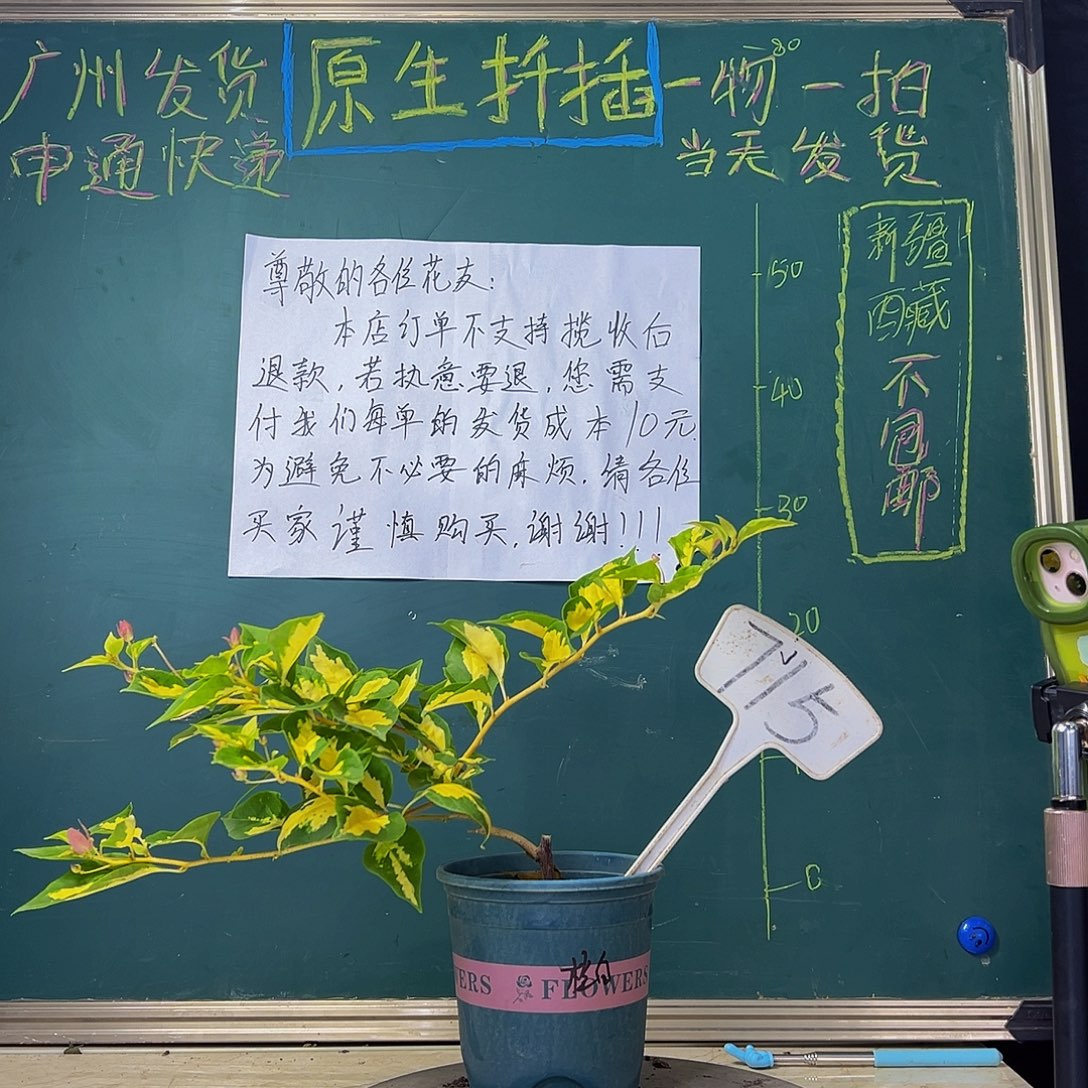 广州发货
申通快递
原生扦插
一物一拍
当天发货
80
尊敬的各位花友:
本店订单不支持揽收后
退款,若执意要退,您需支
付我们每单的发货成本10元.
为避免不必要的麻烦,请各位
买家谨慎购买,谢谢!!!
50
40
30
20
0
新疆
西藏
不包邮
715
ERS FLOWERS